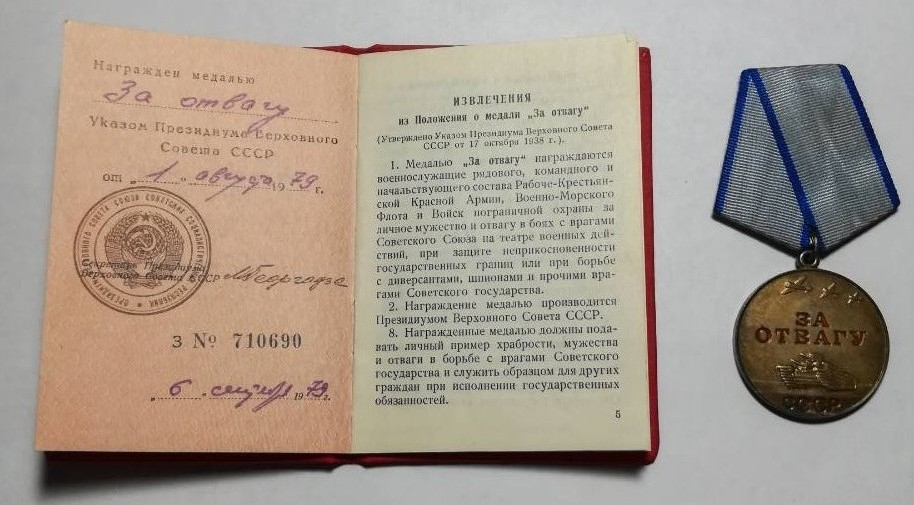 Награжден медалью
За отвагу
Указом Президиума Верховного
Совета СССР
от „1“ августа 1979 г.
Секретарь Президиума
Верховного Совета СССР МГеоргадзе
З № 710690
„6“ 1979 г.
ИЗВЛЕЧЕНИЯ
из Положения о медали „За отвагу“
(Утверждено Указом Президиума Верховного Совета
СССР от 17 октября 1938 г.).
1. Медалью „За отвагу“ награждаются
военнослужащие рядового, командного и
начальствующего состава Рабоче-Крестьян-
ской Красной Армии, Военно-Морского
Флота и Войск пограничной охраны за
личное мужество и отвагу в боях с врагами
Советского Союза на театре военных дей-
ствий, при защите неприкосновенности
государственных границ или при борьбе
с диверсантами, шпионами и прочими вра-
гами Советского государства.
2. Награждение медалью производится
Президиумом Верховного Совета СССР.
8. Награжденные медалью должны пода-
вать личный пример храбрости, мужества
и отваги в борьбе с врагами Советского
государства и служить образцом для других
граждан при исполнении государственных
обязанностей.
5
ЗА
ОТВАГУ
СССР